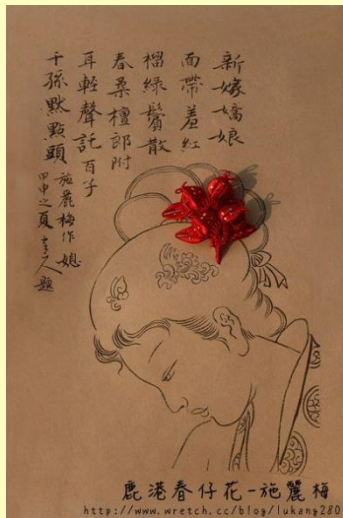 新嫁嬌娘
面帶羞紅
榴綠鬢散
春桑檀郎附
耳輕聲託百子
千孫默點頭 施麗梅作
甲申之夏 人題
鹿港春仔花-施麗梅
http://www.wretch.cc/blog/lukang280